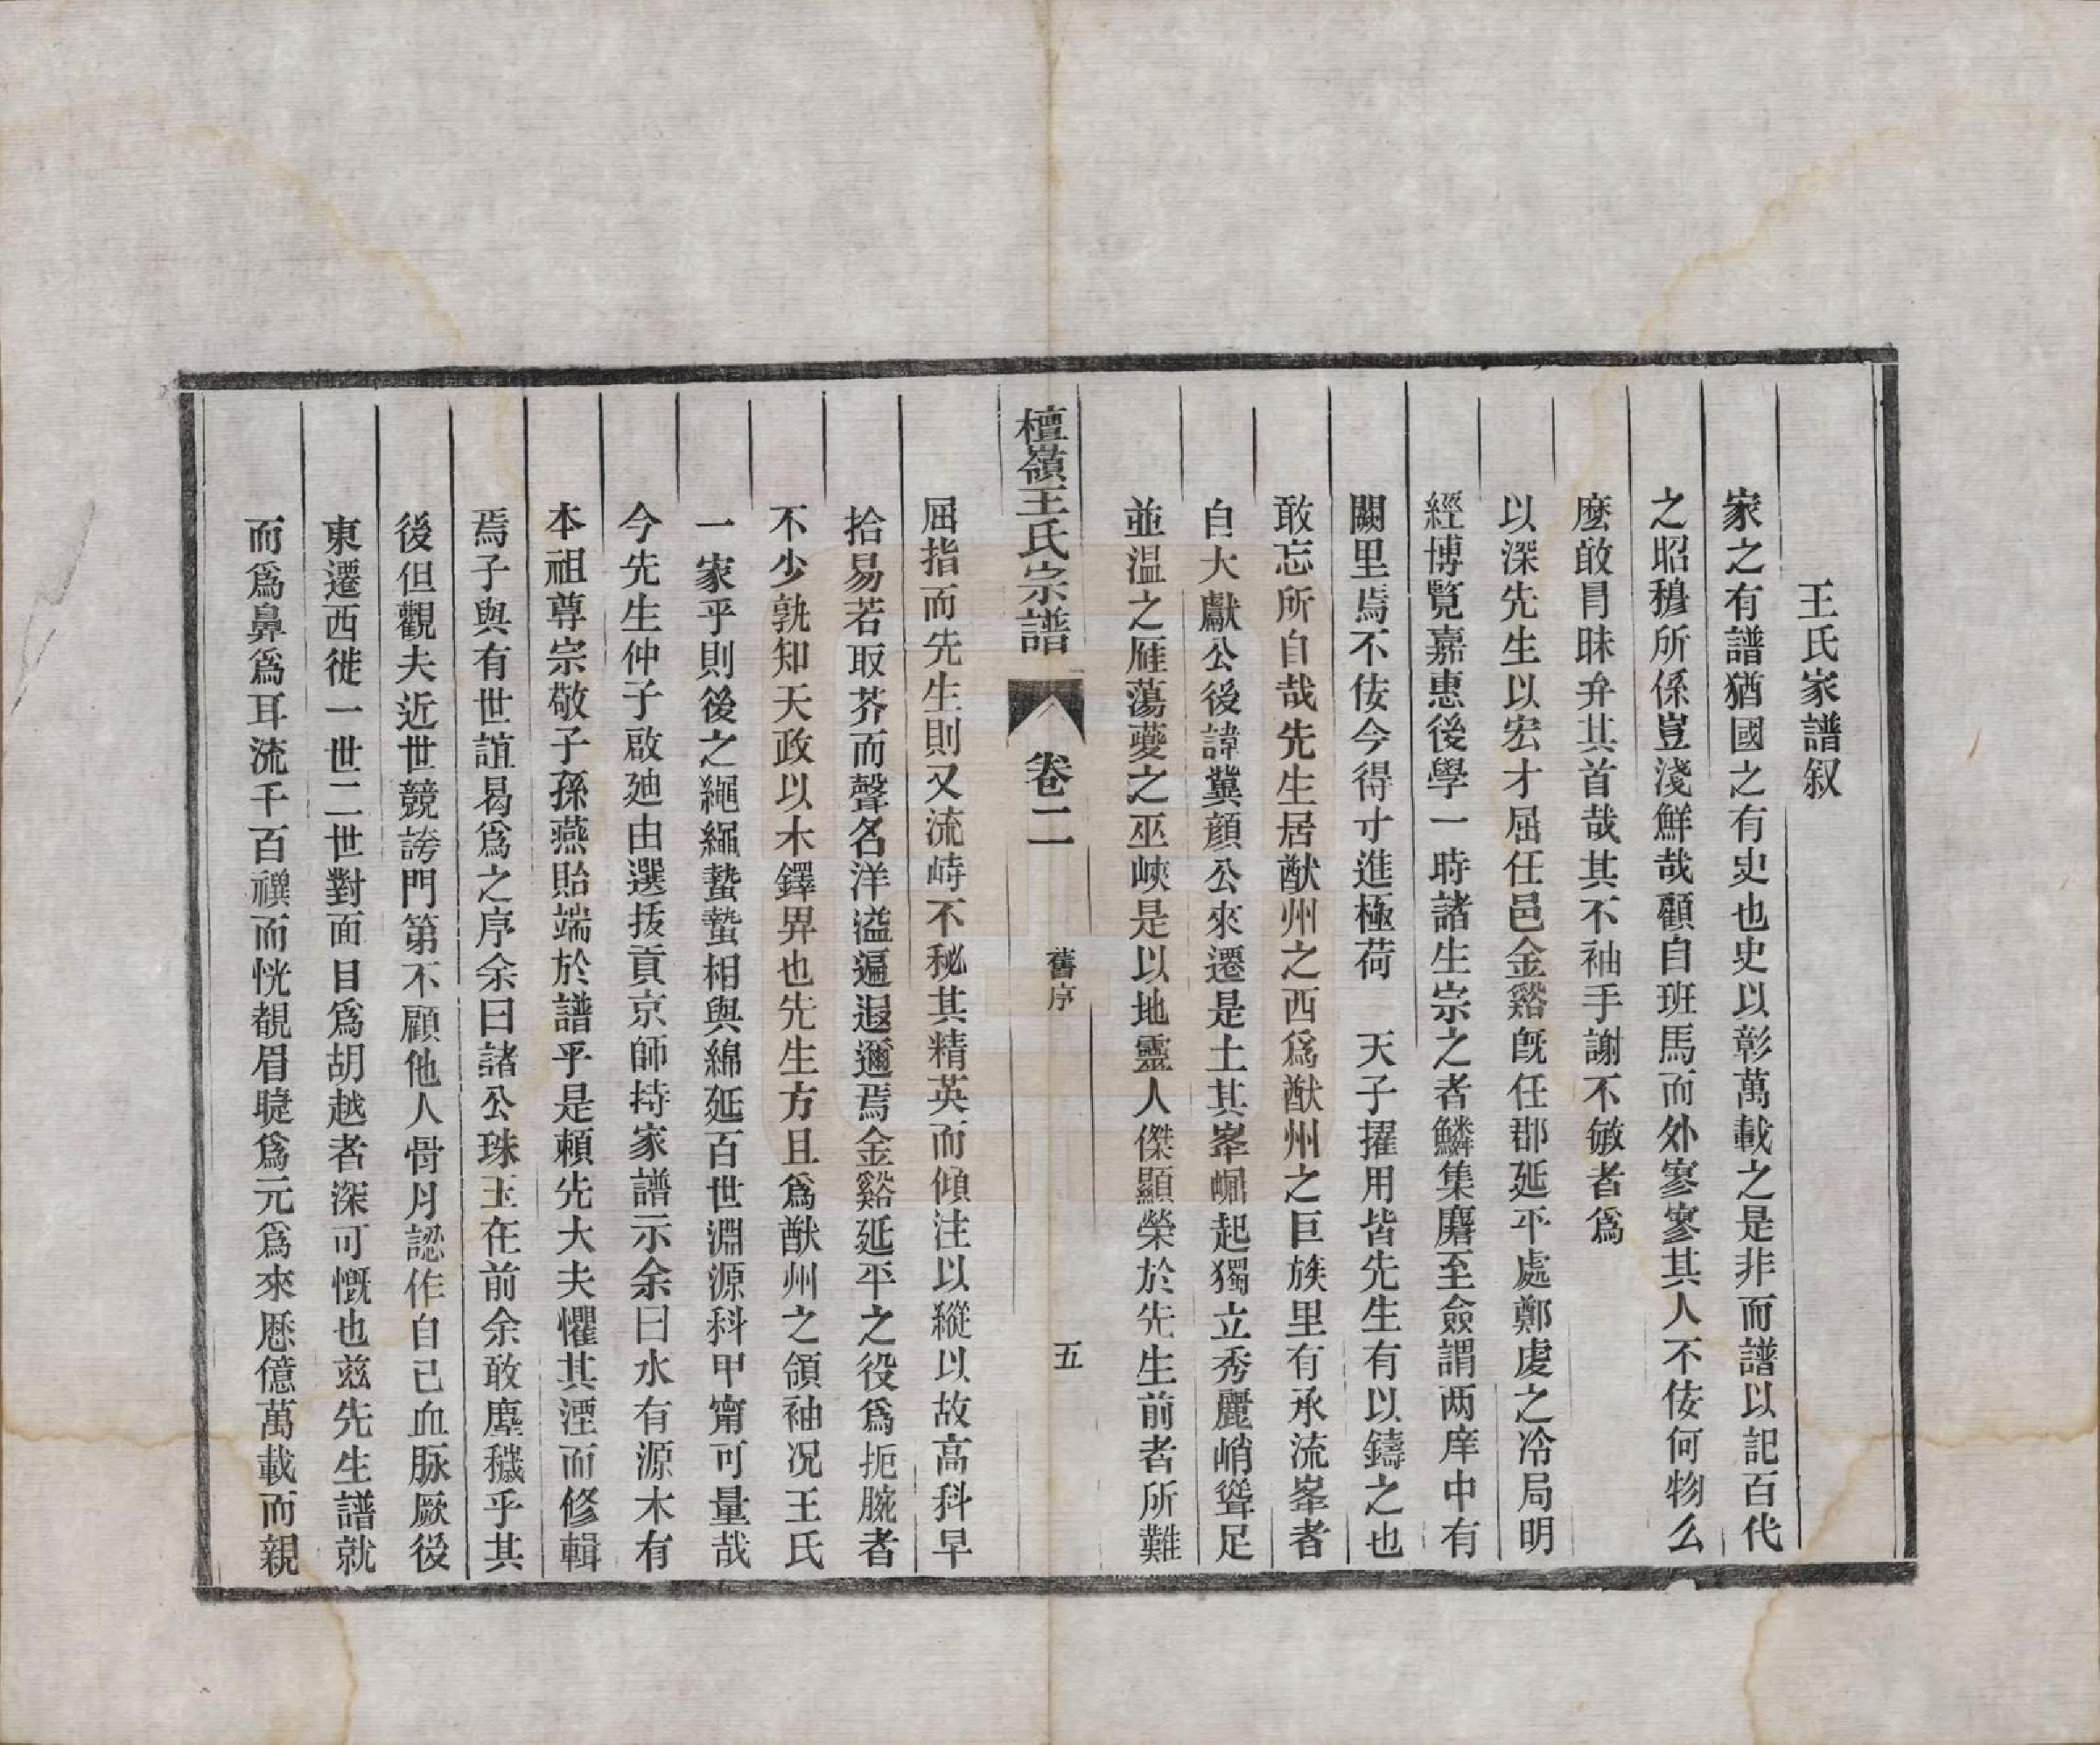 王氏家譜叙
家之有譜猶國之有史也史以彰萬載之是非而譜以記百代
之昭穆所係豈淺鮮哉顧自班馬而外寥寥其人不佞何物么
麼敢冐昧弁其首哉其不袖手謝不敏者爲
以深先生以宏才屈任邑金谿旣任郡延平處鄭虔之冷局明
經博覧嘉惠後學一時諸生宗之者鱗集麏至僉謂两庠中有
闕里焉不佞今得寸進極荷　天子擢用皆先生有以鑄之也
敢忘所自哉先生居猷州之西爲猷州之巨族里有承流峯者
自大獻公後諱冀顔公來遷是土其峯崛起獨立秀麗峭聳足
並温之雁蕩夔之巫峽是以地靈人傑顯榮於先生前者所難
檀嶺王氏宗譜　卷二　舊序　五
屈指而先生則又流峙不秘其精英而傾注以縱以故高科早
拾易若取芥而聲名洋溢遍遐邇焉金谿延平之役爲扼腕者
不少孰知天政以木鐸畀也先生方且爲猷州之領袖况王氏
一家乎則後之繩繩蟄蟄相與綿延百世淵源科甲甯可量哉
今先生仲子啟廸由選拔貢京師持家譜示余曰水有源木有
本祖尊宗敬子孫燕貽端於譜乎是賴先大夫懼其湮而修輯
焉子與有世誼曷爲之序余曰諸公珠玉在前余敢塵穢乎其
後但觀夫近世競誇門第不顧他人骨月認作自己血脉厥後
東遷西徙一世二世對面目爲胡越者深可慨也兹先生譜就
而爲鼻爲耳流千百禩而恍覩眉睫爲元爲來歷億萬載而親